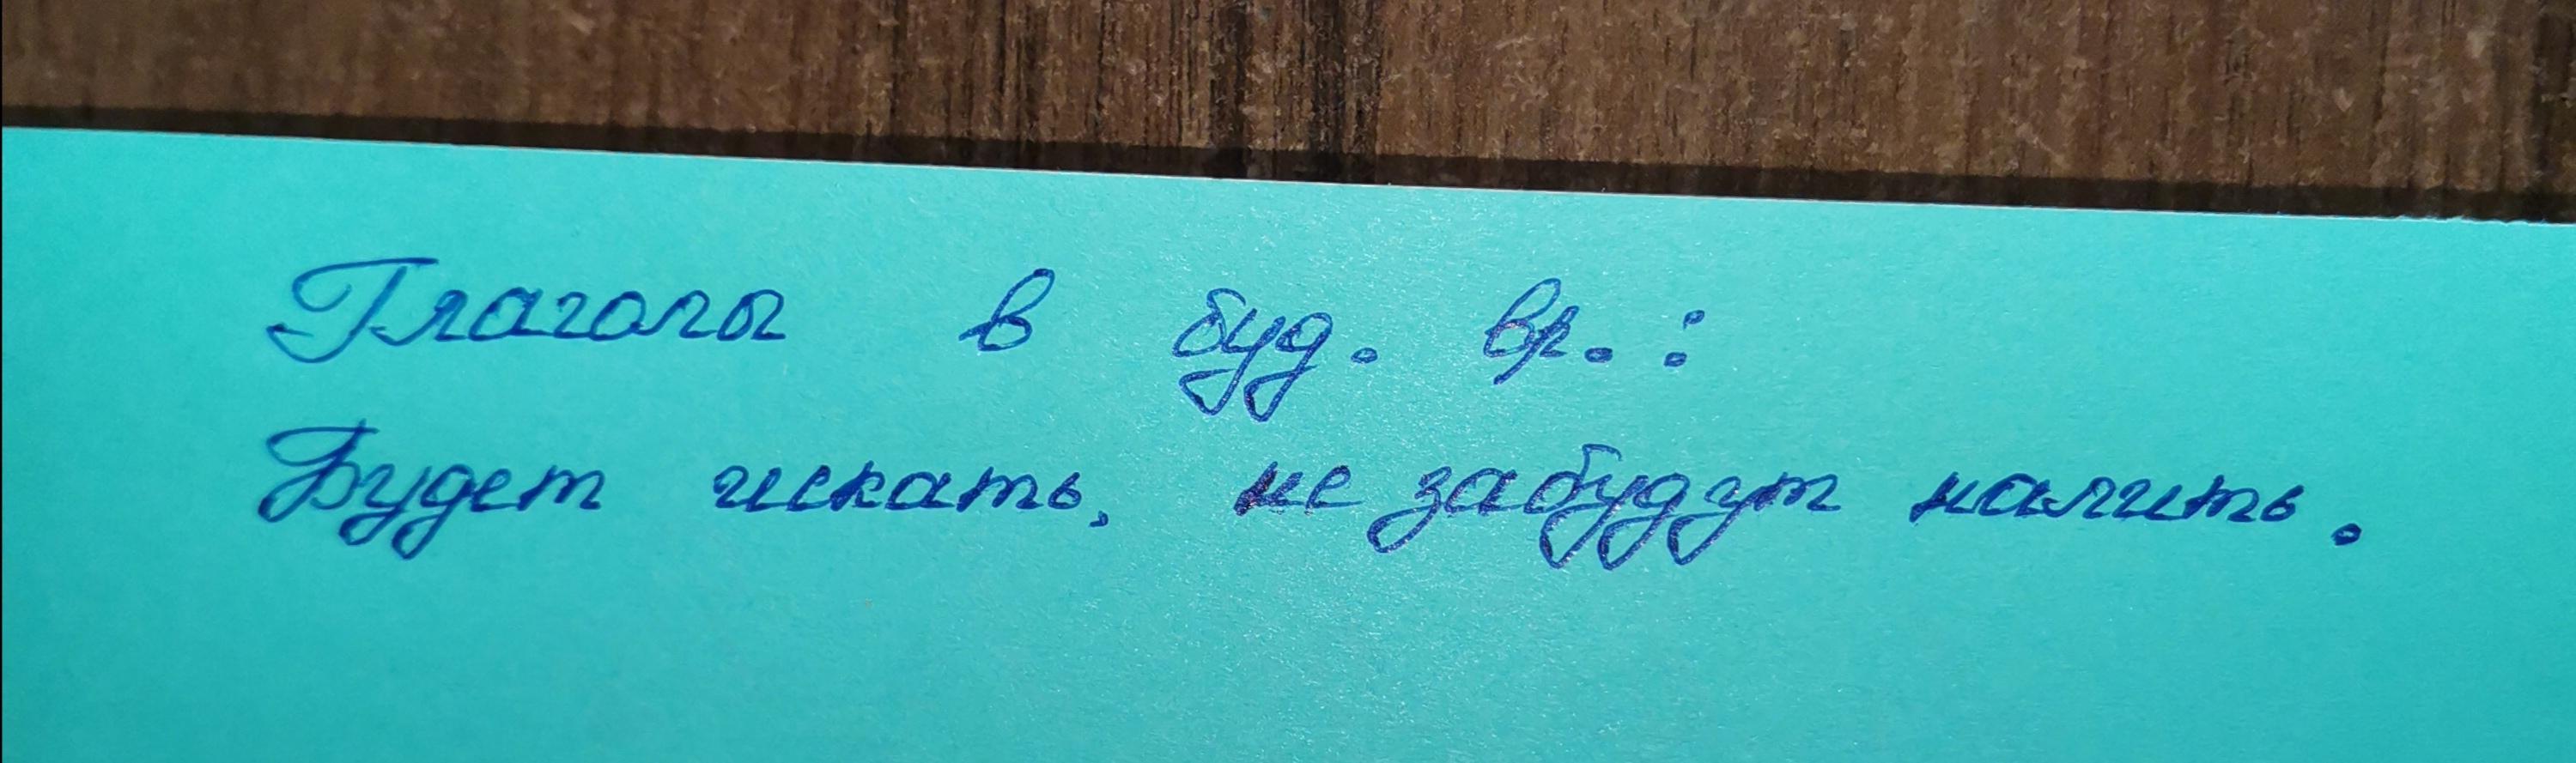 Глаголы в буд. вр. :
Будет искать, не забудут налить.